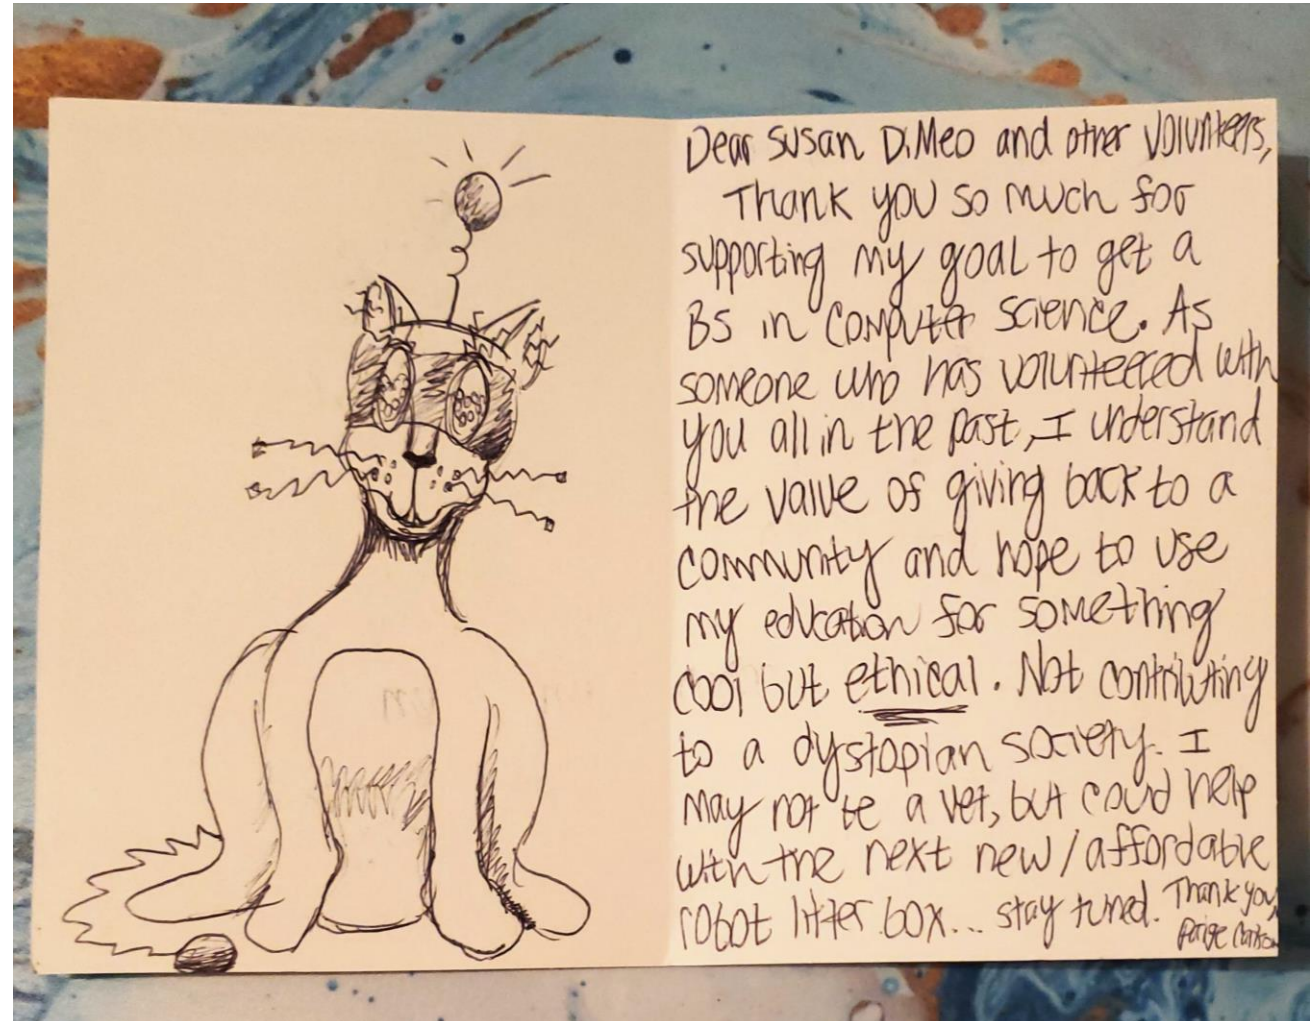 Dear Susan DiMeo and other volunteers,
Thank you so much for
supporting my goal to get a
BS in computer science. As
someone who has volunteered with
you all in the past, I understand
the value of giving back to a
community and hope to use
my education for something
cool but ethical. Not contributing
to a dystopian society. I
may not be a vet, but could help
with the next new/affordable
robot litter box... stay tuned. Thank you,
Paige